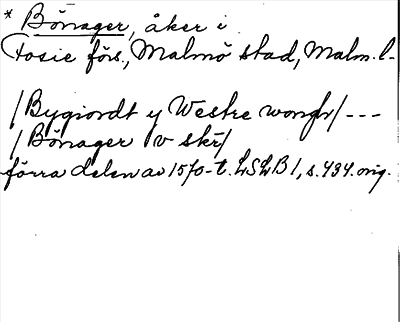 * Bönager, åker i
Fosie förs., Malmö stad, Malm. l.
/Bygiordt y Westre wongh/ ---
/Bönager v skr/
förra delen av 1570-t. LSLB 1, s. 434. orig.